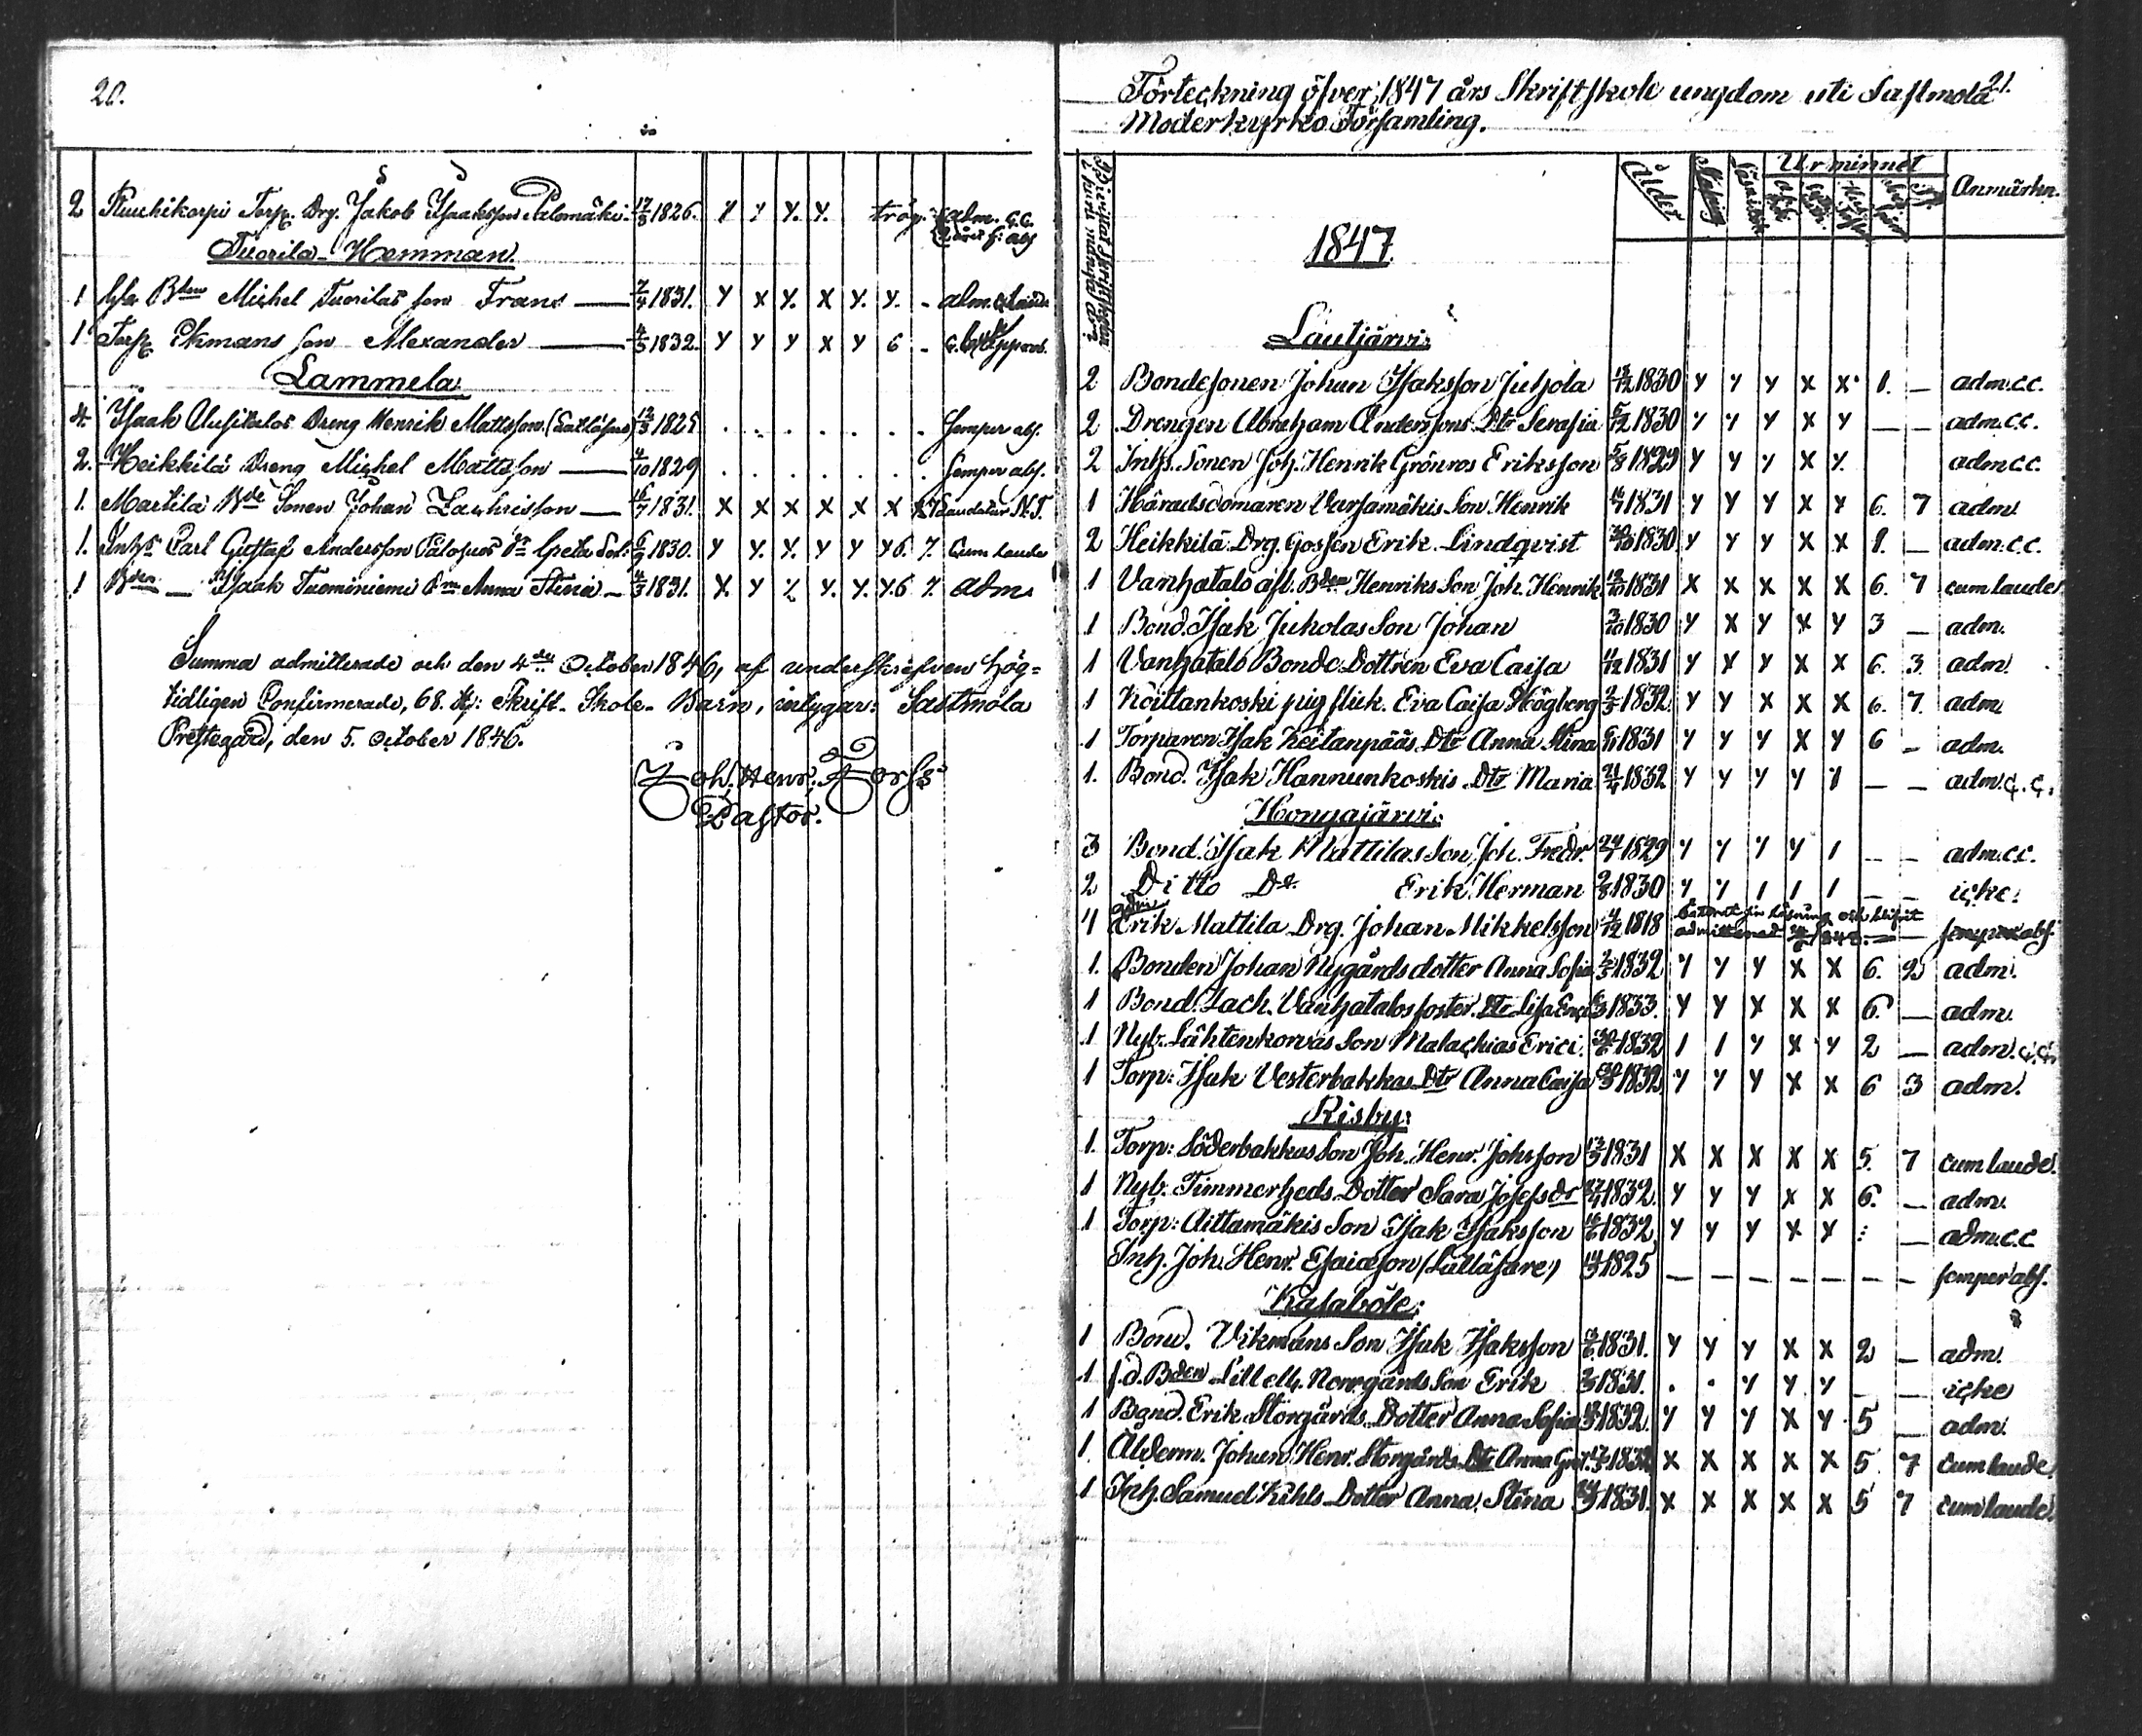 20.
2 Torp. Drg. Jakob Isaaksson Palomäki. 17/3 1826. y y y. y. trög. adm. c.c.
Tuorila Hemman.
1 Michel Tuorilas son Frans 7/4 1831. y x y. x y. y. - adm.
1 Torp Ekmans son Alexander 4/5 1832. y y y x y 6 -
Lammela
4. Isaak Dreng Henrik Mattsson 12/3 1825 . . . . . . . semper abs.
2. Heikkilä Dreng Michel Mattsson 4/10 1829 . . . . . . . semper abs.
1. Martila Bde Sonen Johan Zachrisson 16/7 1831. x x x x x x laudatur N.T.
1. Inhs Carl Gustaf Andersson dr Greta 6/9 1830. y y. y. y y y6 7. Cum laude
1 Bden Isaak Tuominiemi Anna Stina 4/3 1831. x. y y. y. y.6 7. adm
Summa admitterade och den 4de October 1846, af underskrefven hög=
tidligen Confirmerade, 68. st: Skrift-Skole-Barn, intygar: Sastmola
Prestegård, den 5. October 1846.
Joh. Henr. Forss
Pastor.
21.
Förteckning öfver 1847 års Skriftskole ungdom uti Sastmola
Moderkyrko Församling.
Ålder Ur minnet Anmärkn.
1847.
Lautjärvi:
2 Bondesonen Johan Isaksson Juhola 13/12 1830 y y y x x 1. — adm.c.c.
2 Drengen Abraham Anderssons Dtr Serafia 5/12 1830 y y y x y — — adm.c.c.
2 Inhs. Sonen Joh. Henrik Grönroos Eriksson 5/8 1829 y y y x y. adm.c.c.
1 Häradsdomaren Varsamäkis Son Henrik 16/7 1831 y y y x y 6. 7 adm
2 Heikkilä Drg. Gossen Erik Lindqvist 1830 y y y x x 1. — adm.c.c.
1 Vanhatalo afl. Bden Henriks Son Joh. Henrik 12/10 1831 x x x x x 6. 7 cum laude
1 Bond. Isak Juholas Son Johan 3/10 1830 y x y x y 3 — adm.
1 Vanhatalo Bonde Dottren Eva Caisa 4/12 1831 y x y x x 6. 3 adm.
1 Koittankoski pig flick. Eva Caisa Högberg 2/3 1832 y y x x x 6. 7. adm
1 Torparen Isak Keitanpääs Dtr Anna Stina 6/11 1831 y y y x y 6 — adm.
1. Bond. Isak Hannunkoskis Dtr Maria 21/4 1832 y y y y 1 — — adm.c.c.
Hongajärvi:
3 Bond. Isak Mattilas Son Joh. Fredr. 24/7 1829 y y y y 1 — — adm.c.c.
2 Ditto Do Erik Herman 2/8 1830 y y 1 1 1 — — icke.
adm.
4 Erik Mattila Drg. Johan Mikkelsson 4/12 1818 sin läsning och blifvit
admitterad 1848. semper abs.
1. Bonden Johan Nygårds dotter Anna Sofia 2/5 1832 y y y x x 6. 2 adm.
1 Bond. Zach. Vanhatalos foster. Dtr Lisa 6/3 1833. y y x x x 6. — adm.
1 Nyb. Lähtenkorvas Son Malachias Erici. 1832 1 1 y x y 2 — adm.c.c.
1 Torp: Isak Vesterbakkas Dtr Anna Caisa 1832 y y y x x 6 3 adm.
Risby:
1. Torp: Söderbakkas Son Joh. Henr. Johsson 13/3 1831 x x x x x 5. 7 cum laude.
1 Nyb. Timmerheds Dotter Sara Josefs dr 1832. y y y x x 6. — adm.
1 Torp: Aittamäkis Son Isak Isaksson 16/6 1832 y y y x x : — adm.c.c
Inh. Joh. Henr. Esaiasson (Lallåsare) 14/3 1825 — — — — — — — semper abs.
Kasaböle:
1 Bond. Vikmans Son Isak Isaksson 1831. y y y x x 2 — adm.
1 f.d. Bden Norrgårds Son Erik 1831. . . y y y — — icke
1 Bond. Erik Storgårds Dotter Anna Sofia 1832. y y y x y 5 — adm.
1. Ålderm. Johan Henr. Storgårds Dtr Anna 1832 x x x x x 5. 7 Cum laude
1 Inh. Samuel Kihls Dotter Anna Stina 1831. x x x x x 5 7 cum laude.